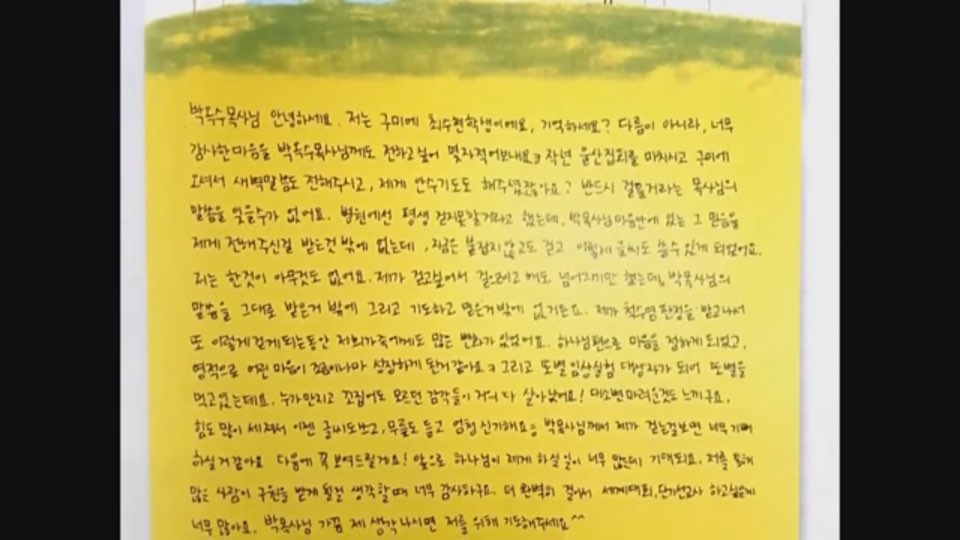 박옥수목사님 안녕하세요. 저는 구미에 최수현학생이에요, 기억하세요? 다름이 아니라, 너무
감사한마음을 박옥수목사님께도 전하고싶어 몇자적어보내요 작년 울산집회를 마치시고 구미에
오셔서 새벽말씀도 전해주시고, 제게 안수기도도 해주셨잖아요? 반드시 걸을거라는 목사님의
말씀을 잊을수가 없어요. 병원에선 평생 걷지못할거라고 했는데, 박목사님마음안에 있는 그 믿음을
제게 전해주신걸 받는것밖에 없는데, 지금은 붙잡지않고도 걷고 이렇게 글씨도 쓸수있게 되었어요.
저는 한것이 아무것도 없어요. 제가 걷고싶어서 걸으려고해도 넘어지기만 했는데, 박목사님의
말씀을 그대로 받은거 밖에 그리고 기도하고 믿은거밖에 없거든요. 제가 척수염판정을 받고나서
또 이렇게걷게되는동안 저희가족에게도 많은 변화가 있었어요. 하나님편으로 마음을 정하게 되었고,
영적으로 어린 마음이 조금이나마 성장하게 된거같아요 그리고 또별임상실험 대상자가 되어 또별을
먹고있는데요. 누가만지고 꼬집어도 모르던 감각들이 거의 다 살아났어요! 대소변마려운것도 느끼구요.
힘도 많이 세져서 이젠 글씨도쓰고, 무릎도 들고 엄청신기해요 박목사님께서 제가 걷는걸보면 너무기뻐
하실거같아요 다음에 꼭 보여드릴게요! 앞으로 하나님이 제게 하실일이 너무 많은데 기대되요. 저를 통해
많은 사람이 구원을 받게 될걸 생각할때 너무 감사하구요. 더 완벽히 걸어서 세계대회, 단기선교사 하고싶은게
너무많아요. 박목사님 가끔 제 생각나시면 저를 위해 기도해주세요^^